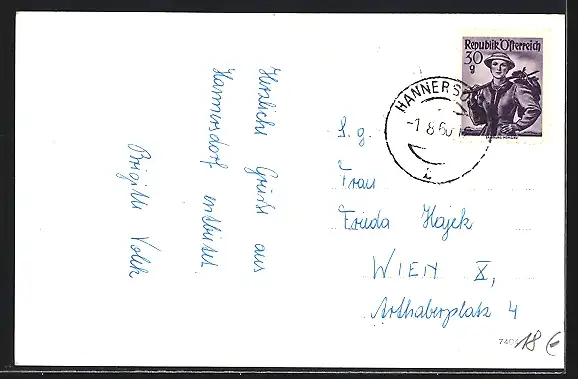 Herzliche Grüße aus
Hannersdorf entbietet
Brigitte Volek
Republik Österreich
30
g
HANNERSD
-1.8.60
S. g.
Frau
Frieda Hajek
WIEN X,
Arthaberplatz 4
18 €